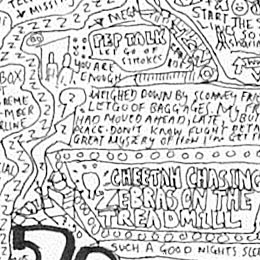 MISSI
MEGA
START THE
SO
Sharin
PEP TALK
LET GO OF
SMOKES
YOU ARE
ENOUGH
BOX
REME
MBER
RLINE
WEIGHED DOWN BY
LET GO OF BAGGAGES. MY
HAD MOVED AHEAD, LATE, BUT
PEACE. DON'T KNOW FLIGHT DETA
GREAT MYSERY OF HOW I'M GET
CHEETAH CHASING
ZEBRAS ON THE
TREADMILL
SUCH A GOOD NIGHTS SLEE